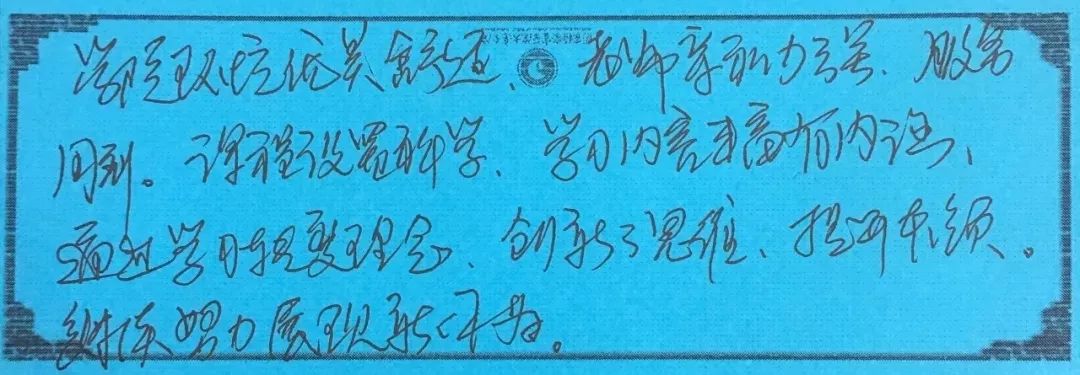 学院环境优美舒适、老师亲和力强、服务
周到。课程设置科学、学习内容丰富有内涵、
通过学习转变理念、创新了思维、提升本领。
努力展现新作为。